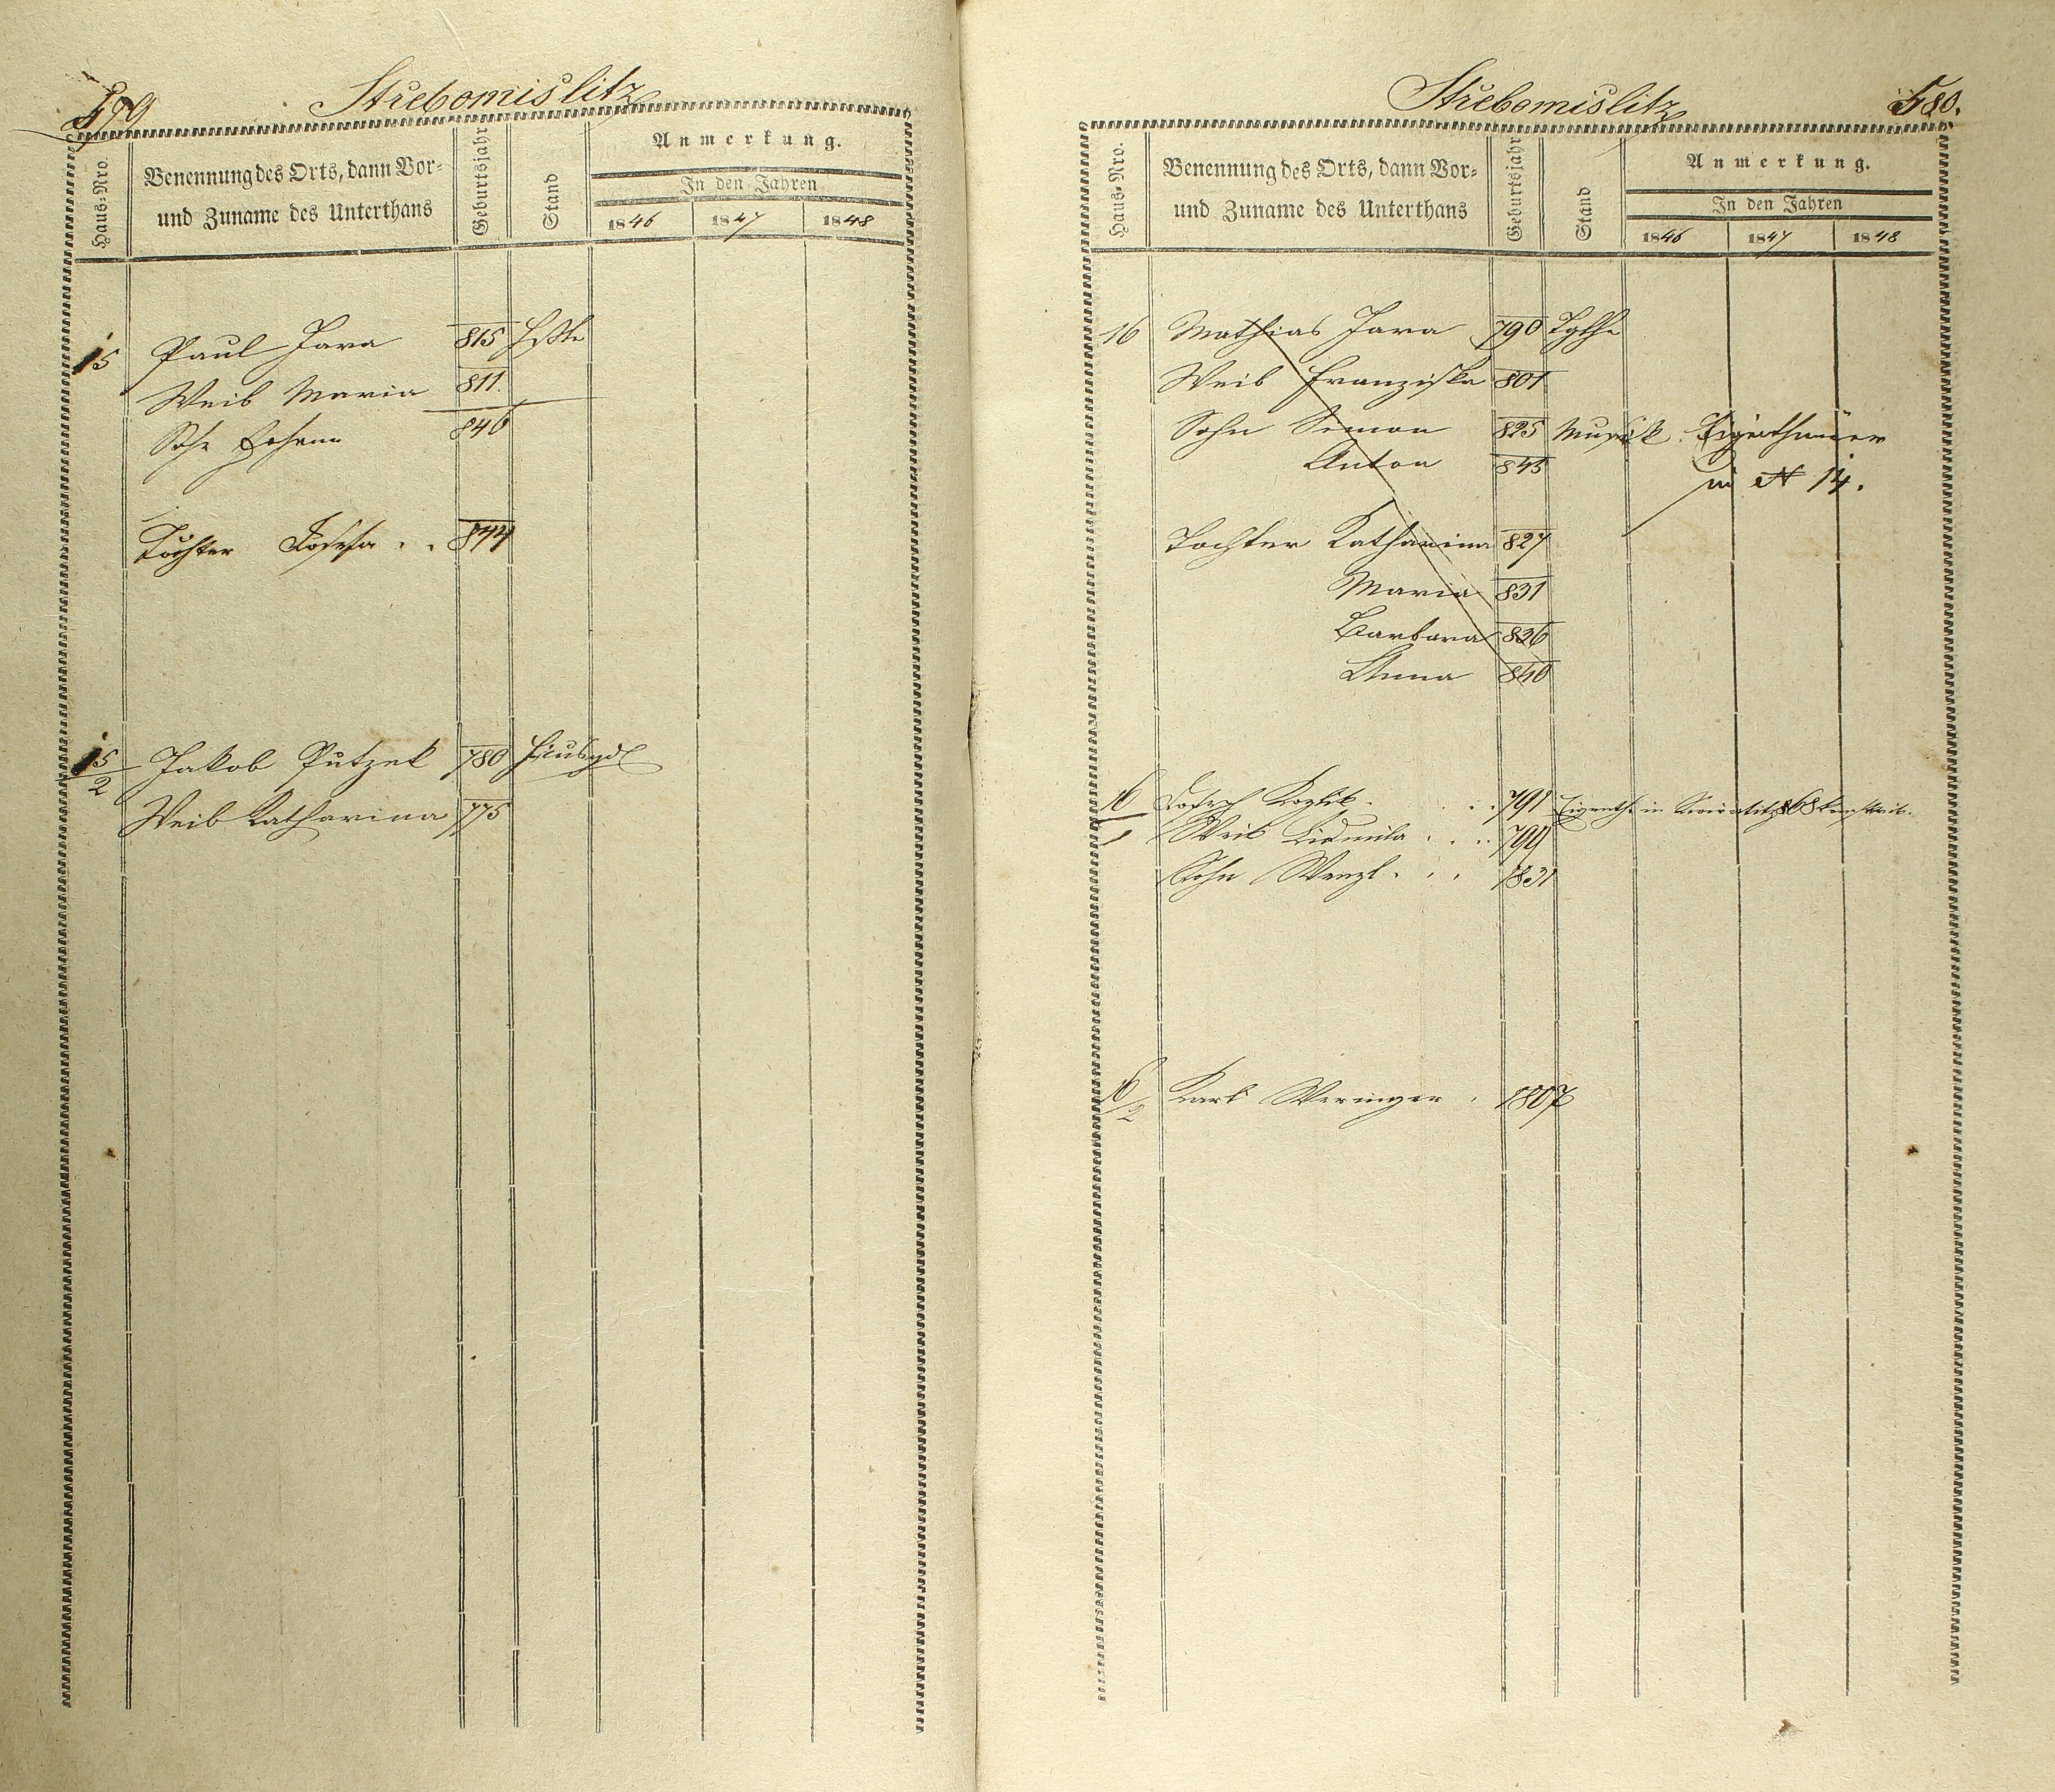 579
Střebomislitz
Haus-Nro.
Benennung des Orts, dann Vor-
und Zuname des Unterthans
Geburtsjahr
Stand
Anmerkung.
In den Jahren
1846 1847 1848
15 Paul Jara 815
Weib Maria 811.
Sohn Johann 846
Tochter Josefa . . 844
15/2 Jakob Putzek 780
Weib Katharina 775
Střebomislitz
580.
Haus-Nro.
Benennung des Orts, dann Vor-
und Zuname des Unterthans
Geburtsjahr
Stand
Anmerkung.
In den Jahren
1846 1847 1848
16 Mathias Jara 790
Weib Franziska 801
Sohn Simon 825 Eigenthümer
Anton 845 in N 14.
Tochter Katharina 827
Maria 831
Barbara 836
Anna 840
16/1 Josef . . . 791 Eigenth. in
Weib Lidmila . . . 799
Sohn Wenzl . . . 1831
16/2 Karl Weringer . 1807